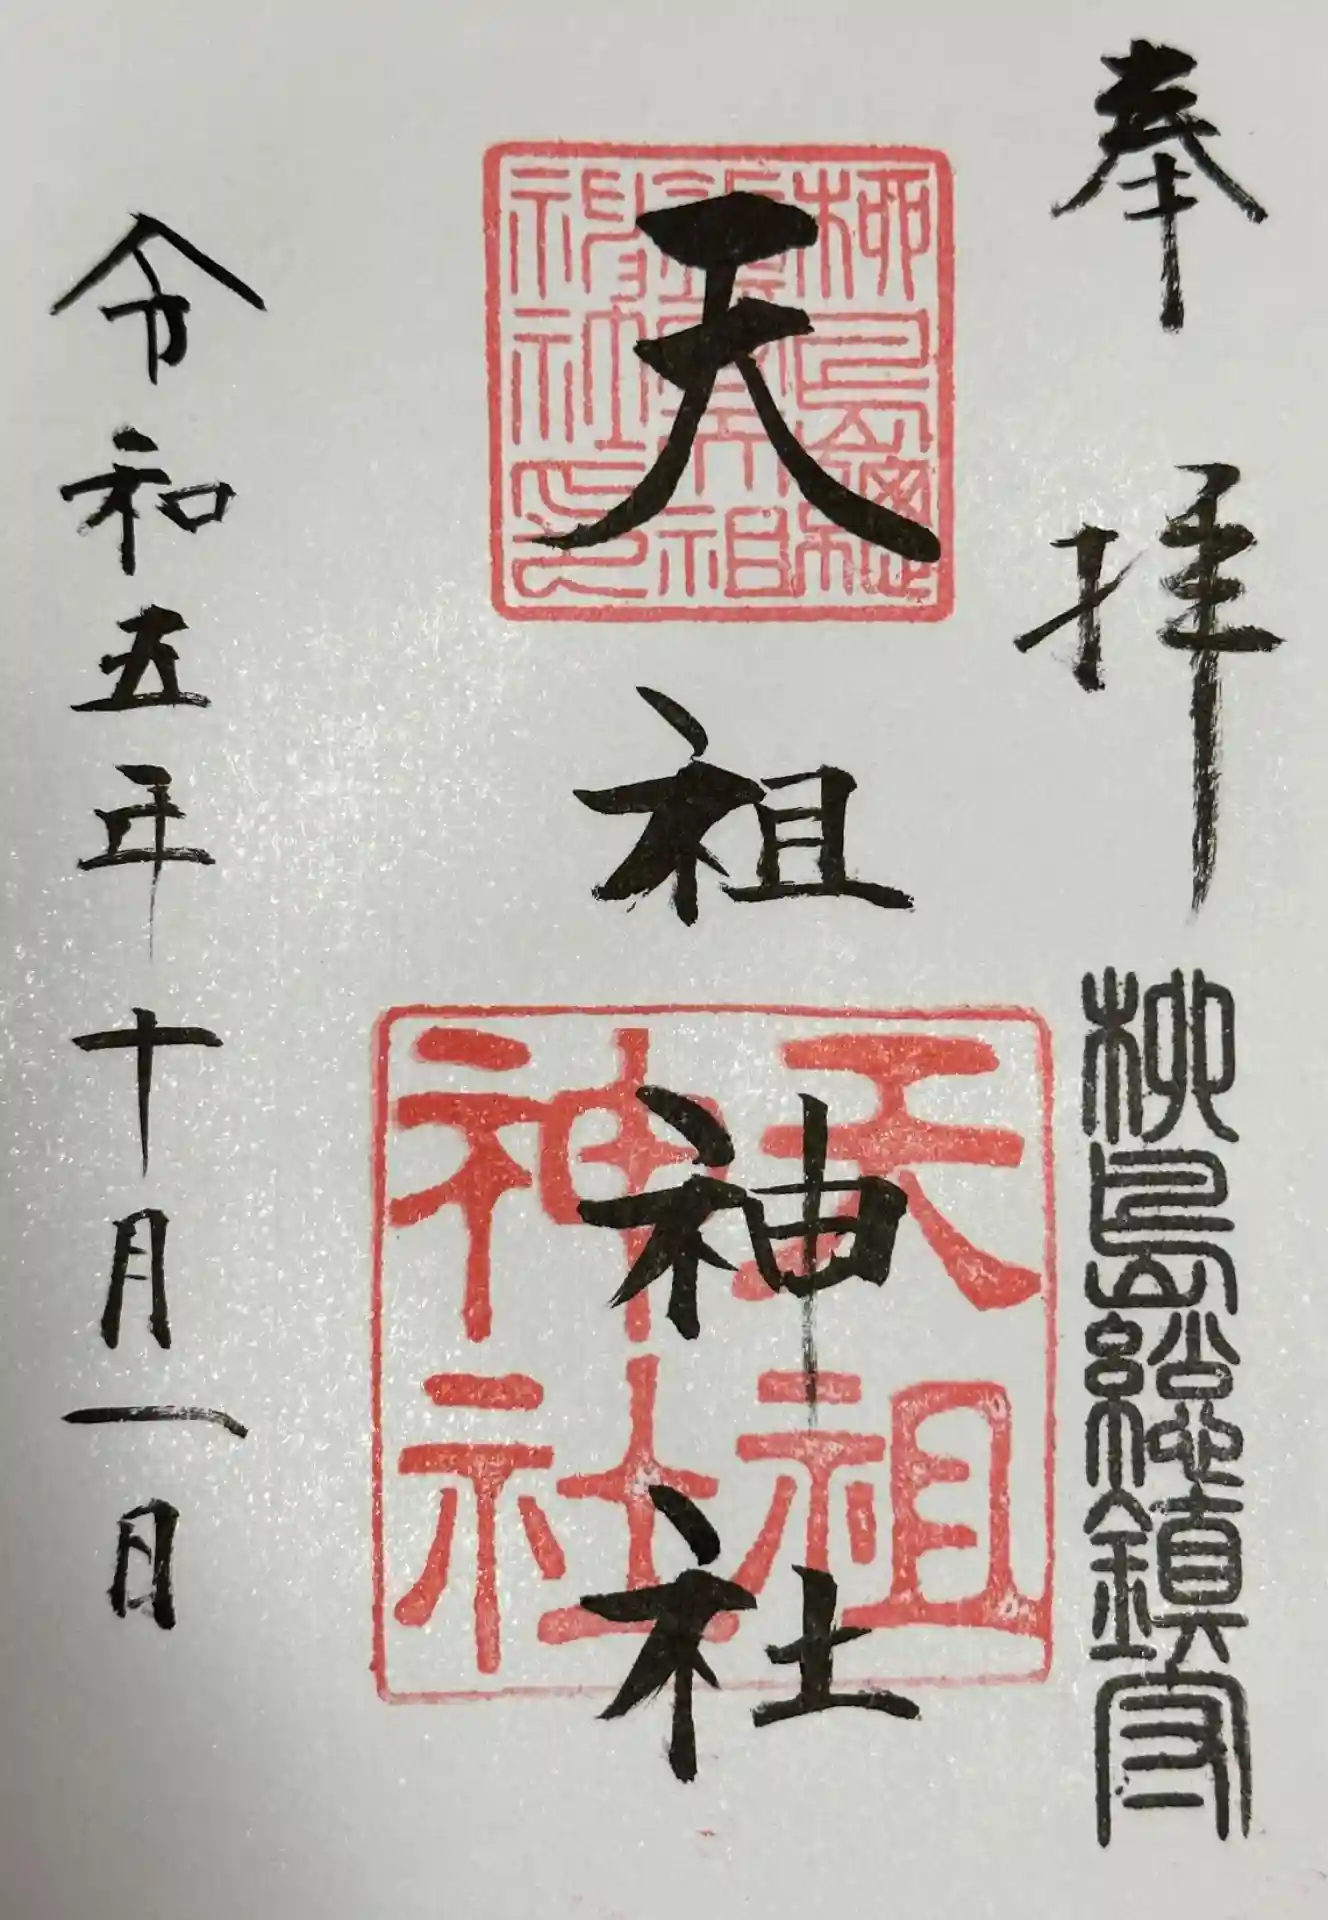 奉拝
柳島総鎮守
天祖神社
柳島総
鎮守天祖
神社印
天祖
神社
令和五年十月一日